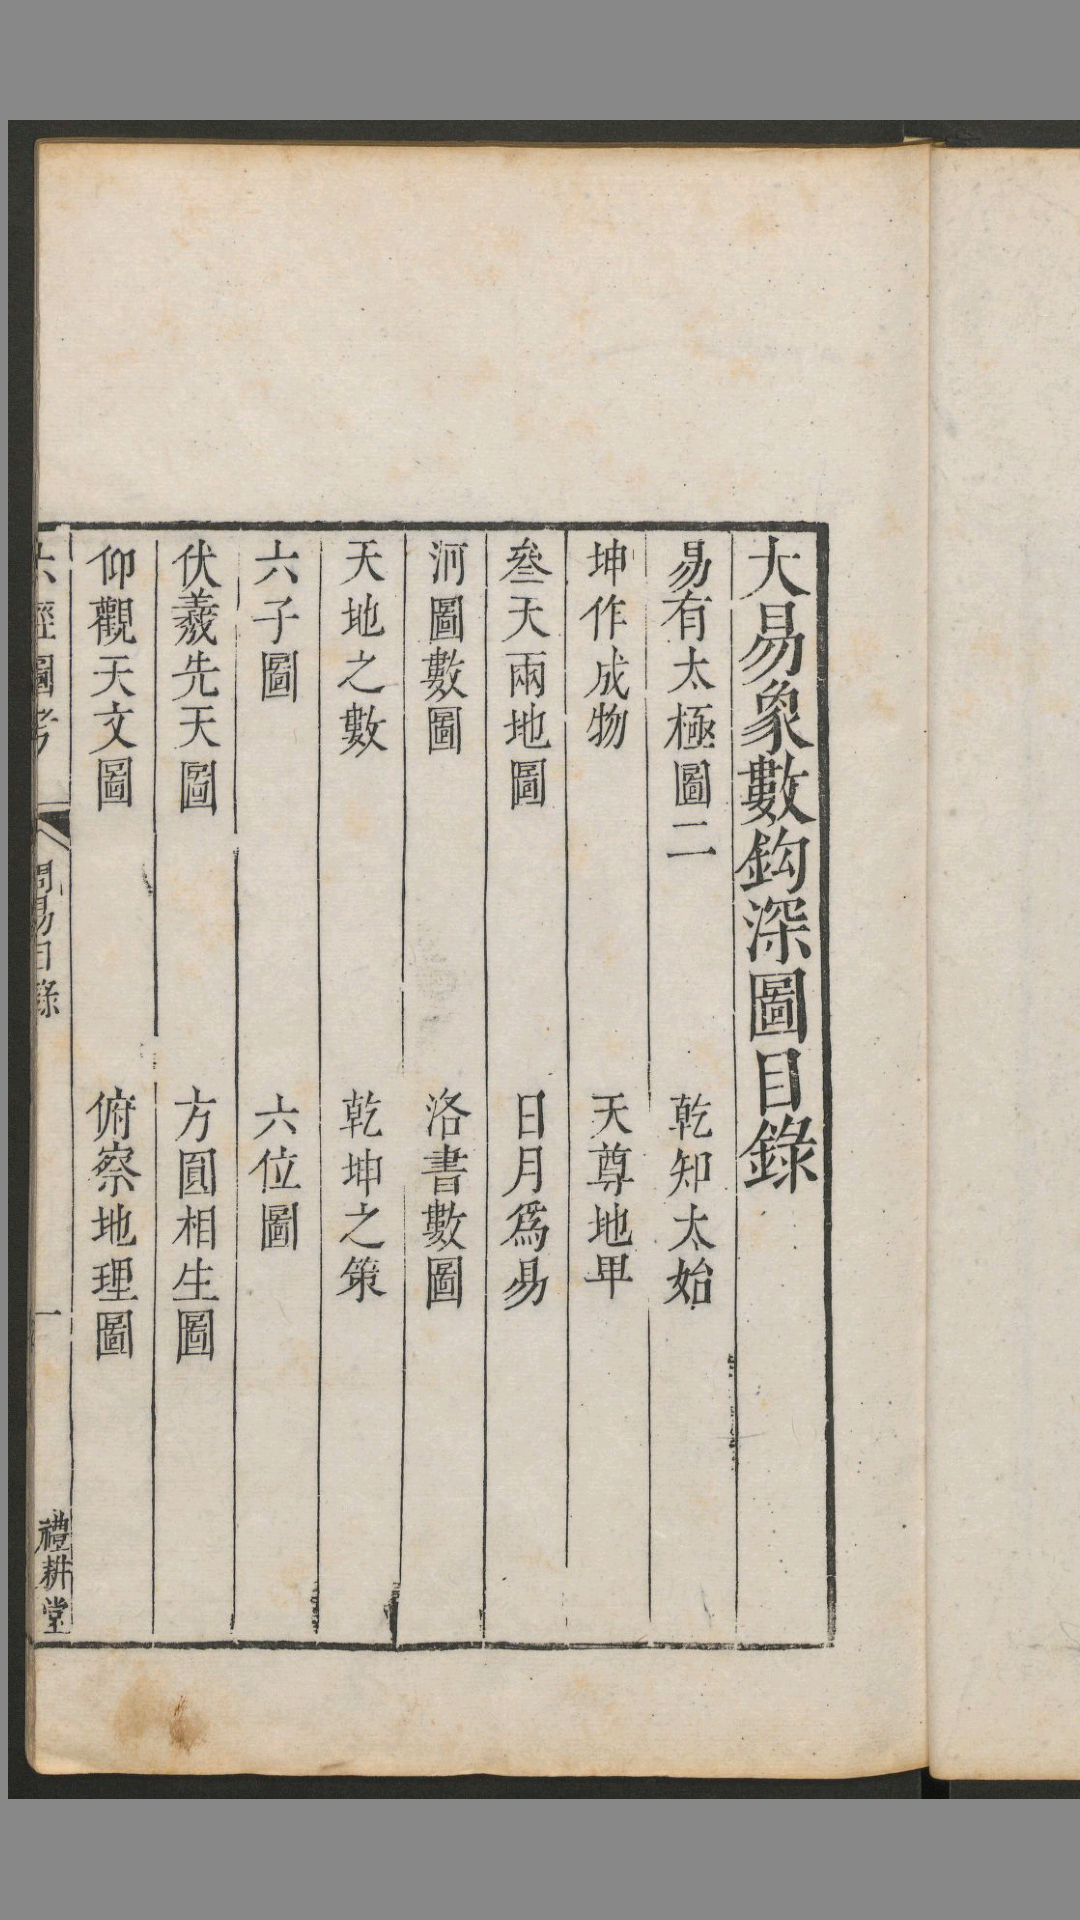 大易象數鈎深圖目錄
易有太極圖二 乾知太始
坤作成物 天尊地卑
叄天兩地圖 日月爲易
河圖數圖 洛書數圖
天地之數 乾坤之策
六子圖 六位圖
伏羲先天圖 方圓相生圖
仰觀天文圖 俯察地理圖
六經圖考 周易目錄 一 禮耕堂